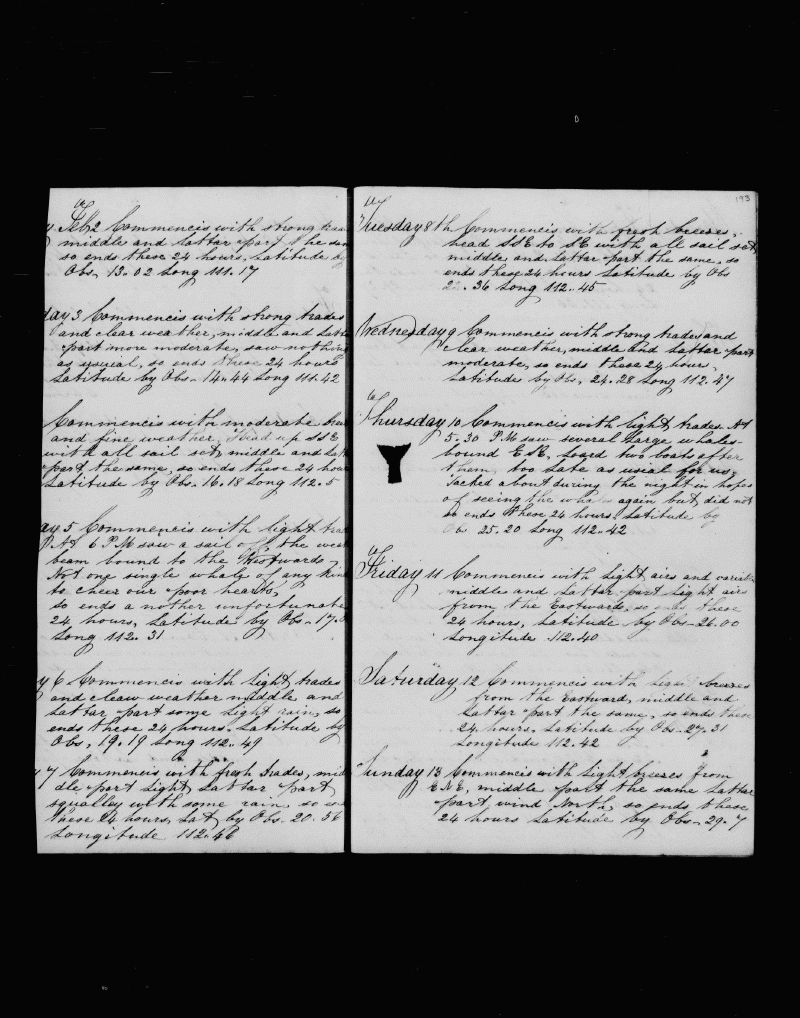 y Feb 2 Commencis with strong
middle and lattar part the sam
so ends these 24 hours, Latitude by
Obs, 13.02 Long 111.17
day 3 Commencis with strong trades
and clear weather, middle and Latta
part more moderate, saw nothing
as usuial, so ends these 24 hours
Latitude by Obs. 14.44 Long 111.42
Commencis with moderate
and fine weather, Head up SSE
with all sail set, middle and Lat
part the same, so ends these 24 hour
Latitude by Obs. 16.18 Long 112.5
ay 5 Commencis with light trad
At 6 PM saw a sail off the wea
beam bound to the Westwards
Not one single whale of any kin
to cheer our poor hearts,
so ends a nother unfortunate
24 hours, Latitude by Obs. 17.
Long 112.31
y 6 Commencis with light trades
and cleaw weather middle and
Lattar part some light rain, so
ends these 24 hours. Latitude by
Obs, 19.19 Long 112.49
y 7 Commencis with fresh trades, mid
dle part light, Lattar part
squalley with some rain so en
these 24 hours, Lat by Obs. 20.56
Longitude 112.46
193
Tuesday 8th Commencis with fresh breezes,
head SSE to SE with all sail set,
middle and Lattar part the same, so
ends these 24 hours Latitude by Obs
36 Long 112.45
Wednesday 9 Commencis with strong trades and
clear weather, middle and Lattar part
moderate, so ends these 24 hours,
Latitude by Obs, 24.28 Long 112.47
Thursday 10 Commencis with light trades. At
5.30 P.M saw several large whales
bound ESE, Loard two boats after
them, too Late as usial for us,
Tacked about during the night in hopes
of seeing the whales again but did not
so ends these 24 hours, Latitude by
Obs 25.20 Long 112.42
Friday 11 Commencis with Light airs and variabl
middle and Lattar part Light airs
from the Eastwards, so ends these
24 hours, Latitude by Obs. 26.00
Longitude 112.40
Saturday 12 Commencis with light breezes
from the Eastward, middle and
Lattar part the same, so ends these
24 hours, Latitude by Obs. 27.31
Longitude 112.42
Sunday 13 Commencis with Light breezes from
ENE, middle part the same Lattar
part wind North, so ends these
24 hours Latitude by Obs. 29.7